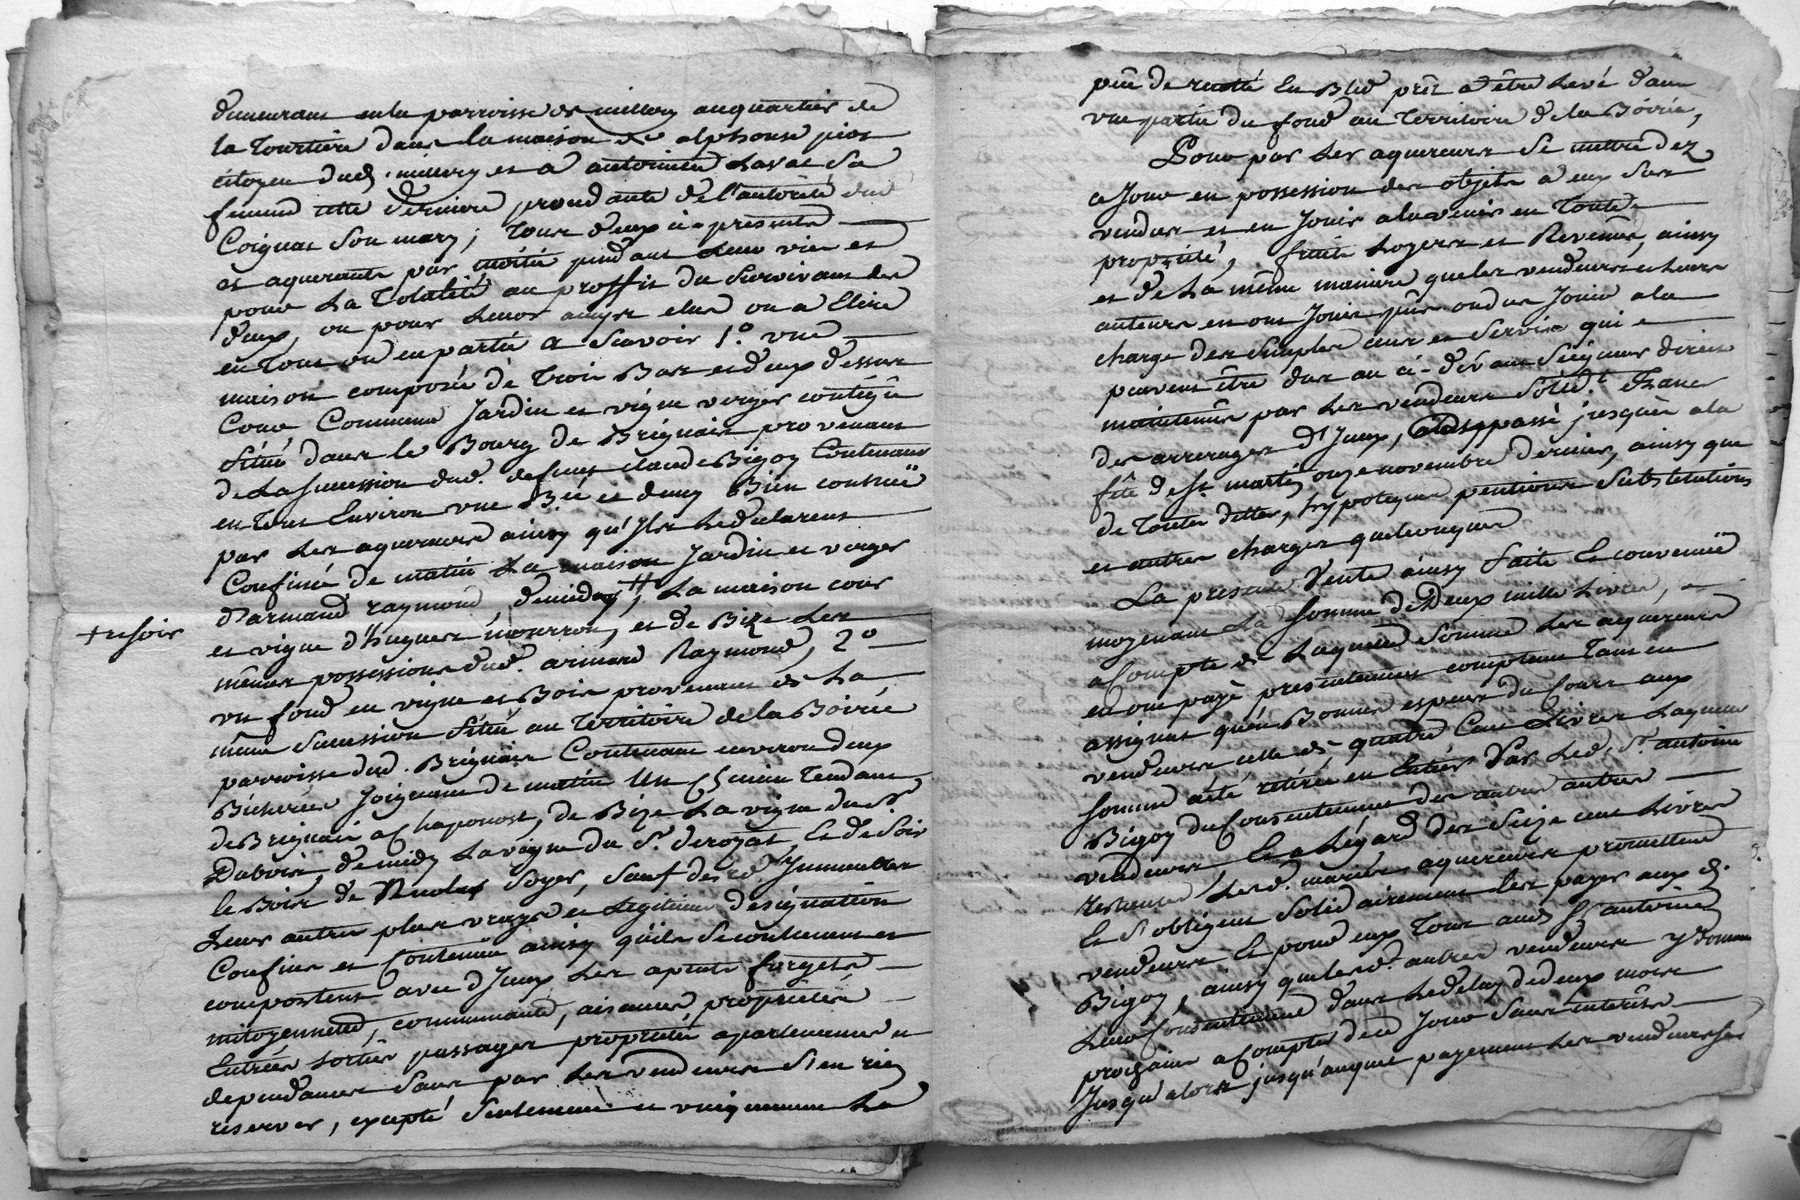 demeurant en la parroisse de millery au quartier de
la Tourtiere dans la maison de alphonse
citoyen dud. millery et a antoinette Lavat sa
femme cette derniere procedante de l'autorité dud
Coignat son mary; tous deux ci-presents
et aquerants par moitié pendant leur vie et
pour La Totalité au proffit du Survivant des
deux, ou pour leurs amys elus ou a Elire
en Tout ou en partie a Scavoir 1.° une
maison composée de Trois Bas et deux dessus
Cour Commune Jardin et vigne verger contigu
Situé dans le Bourg de Brignais provenant
de La Succession dud. deffunt claude Bigoy Contenant
en Tout Environ une B.ée et demy Bien connüe
par Les aquereurs ainsy qu'Ils Le declarent
Confiné de matin La maison Jardin et verger
d'armand raymond, de midy # La maison cour
+ et soir
et vigne d'hugues, et de Bize Les
mêmes possessions dud. armand Raymond, 2°
un fond en vigne et Bois provenant de La
même Succession Situé au Territoire de la Boirie
parroisse dud. Brignais Contenant environ deux
Bicherées Joignant de matin Un Chemin Tendant
de Brignais a Chaponost, de Bize La vigne du Sr
Dubois, de midy La vigne du Sr. derozat, Et de Soir
le Bois de Nicolas Soyer, Sauf desd. Immeubles
Leurs autres plus vrayes et Legitimes désignation
Confins et Contenüe ainsy qu'ils Se contiennent et
comportent avec d'Iceux Les agents forgets
mitoyenneté, communauté, aisances, proprietés
Entrées sorties passages proprietés apartenances et
dependances Sans par Les vendeurs S'en rien
réserver, excepté Seulement et uniquement La
prise de recolte En Bled prêt a être Levé dans
une partie du fond au Territoire de la Boirie,
Pour par Les aquereurs Se mettre dez
ce Jour en possession des objets a eux Sus
vendus et en Jouir a l'avenir en Toute
propriété, fruits Loyers et Revenus, ainsy
et de La même maniere que les vendeurs et leurs
auteurs en ont Jouis pûs ou dus Jouir a la
charge des Simples cens et Servis qui
peuvent être dus au ci-devant Seigneur direct
maintenûs par Les vendeurs Solid.t Francs
des arrerages d'Iceux, du passé jusques a la
fête de St martin onze novembre dernier, ainsy que
de Toutes dettes, hypoteques pentions Substitutions
et autres charges quelconques
La presente Vente ainsy faite Et convenüe
moyenant La Somme de Deux mille Livres,
a Compte de Laquelle Somme Les aquereurs
en ont payé, presentement comptant Tant en
assignat qu'en Bonnes especes du Cours aux
vendeurs celle de quatre Cent Livres Laquelle
Somme a été retirée en Entier Par Led. Sr. antoine
Bigoy du Consentement des autres
vendeurs, Et a Légard des Seize cent Livres
restantes Lesd. mariés aquereurs promettent
Et S'obligent Solidairement Les payer aux d.
vendeurs Et pour eux Tous aud. Sr antoine
Bigoy, ainsy que lesd. autres vendeurs y donnent
Leur Consentement dans Le delay de deux mois
prochain a Compter de ce Jour Sans interêts
Jusqu'alors jusqu'auquel payement Les vendeurs Se